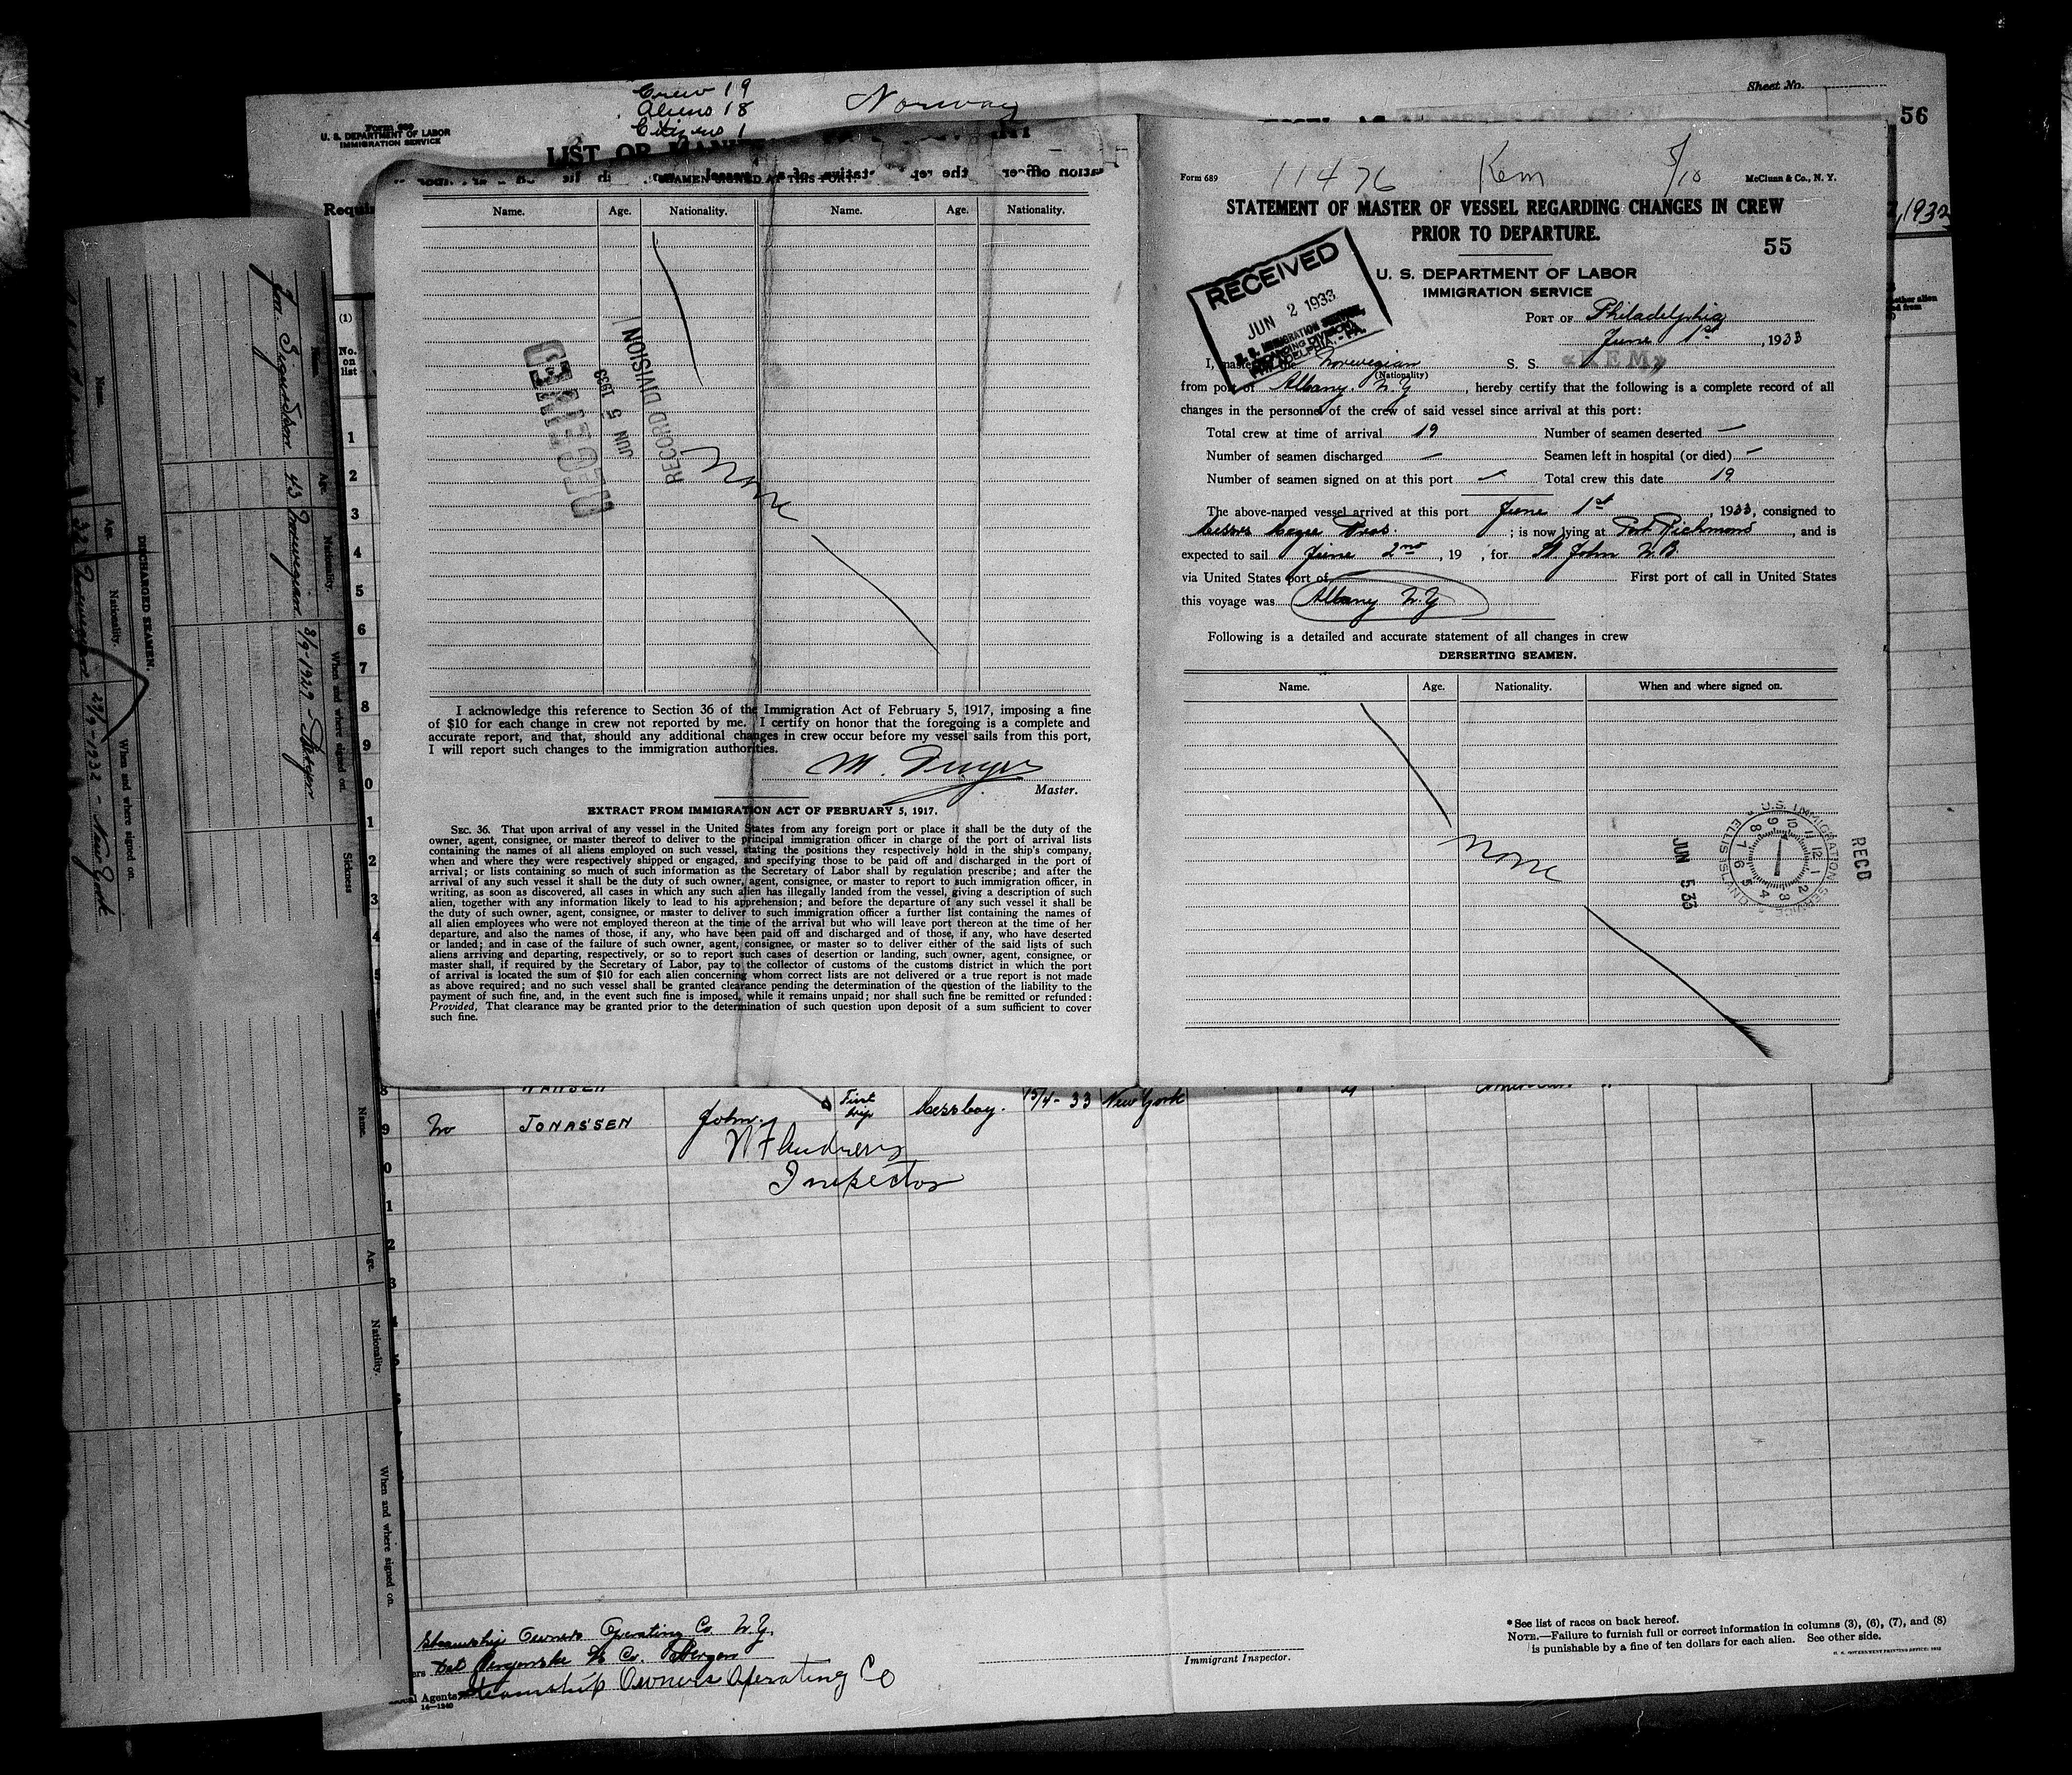 Crew 19
Aliens 18
Citizens 1
Norway
Sheet No.
56
Form 689
U. S. DEPARTMENT OF LABOR
IMMIGRATION SERVICE
LIST OR
, 1932
SEAMEN SIGNED AT THIS PORT.
Name. Age. Nationality. Name. Age. Nationality.
RECEIVED
JUN 5 1933
RECORD DIVISION
None
I acknowledge this reference to Section 36 of the Immigration Act of February 5, 1917, imposing a fine
of $10 for each change in crew not reported by me. I certify on honor that the foregoing is a complete and
accurate report, and that, should any additional changes in crew occur before my vessel sails from this port,
I will report such changes to the immigration authorities.
Master.
EXTRACT FROM IMMIGRATION ACT OF FEBRUARY 5, 1917.
SEC. 36. That upon arrival of any vessel in the United States from any foreign port or place it shall be the duty of the
owner, agent, consignee, or master thereof to deliver to the principal immigration officer in charge of the port of arrival lists
containing the names of all aliens employed on such vessel, stating the positions they respectively hold in the ship's company,
when and where they were respectively shipped or engaged, and specifying those to be paid off and discharged in the port of
arrival; or lists containing so much of such information as the Secretary of Labor shall by regulation prescribe; and after the
arrival of any such vessel it shall be the duty of such owner, agent, consignee, or master to report to such immigration officer, in
writing, as soon as discovered, all cases in which any such alien has illegally landed from the vessel, giving a description of such
alien, together with any information likely to lead to his apprehension; and before the departure of any such vessel it shall be
the duty of such owner, agent, consignee, or master to deliver to such immigration officer a further list containing the names of
all alien employees who were not employed thereon at the time of the arrival but who will leave port thereon at the time of her
departure, and also the names of those, if any, who have been paid off and discharged and of those, if any, who have deserted
or landed; and in case of the failure of such owner, agent, consignee, or master so to deliver either of the said lists of such
aliens arriving and departing, respectively, or so to report such cases of desertion or landing, such owner, agent, consignee, or
master shall, if required by the Secretary of Labor, pay to the collector of customs of the customs district in which the port
of arrival is located the sum of $10 for each alien concerning whom correct lists are not delivered or a true report is not made
as above required; and no such vessel shall be granted clearance pending the determination of the question of the liability to the
payment of such fine, and, in the event such fine is imposed, while it remains unpaid; nor shall such fine be remitted or refunded:
Provided, That clearance may be granted prior to the determination of such question upon deposit of a sum sufficient to cover
such fine.
Form 689 11476 Kem 5/10 McClunn & Co., N. Y.
STATEMENT OF MASTER OF VESSEL REGARDING CHANGES IN CREW
PRIOR TO DEPARTURE.
55
U. S. DEPARTMENT OF LABOR
IMMIGRATION SERVICE
RECEIVED
JUN 2 1933
U. S. IMMIGRATION SERVICE,
BOARDING DIVISION
PHILADELPHIA, - PA.
PORT OF Philadelphia
June 1st, 1933
I, master Norwegian S. S. «KEM»
(Nationality)
from port of Albany. N.Y, hereby certify that the following is a complete record of all
changes in the personnel of the crew of said vessel since arrival at this port:
Total crew at time of arrival 19 Number of seamen deserted —
Number of seamen discharged — Seamen left in hospital (or died) —
Number of seamen signed on at this port — Total crew this date 19
The above-named vessel arrived at this port June 1st, 1933, consigned to
Messrs Magee Bros. ; is now lying at Port Richmond, and is
expected to sail June 2nd, 19 , for St John N.B.
via United States port of First port of call in United States
this voyage was Albany N.Y
Following is a detailed and accurate statement of all changes in crew
DERSERTING SEAMEN.
Name. Age. Nationality. When and where signed on.
None
U.S. IMMIGRATION SERVICE ELLIS ISLAND
RECD
JUN 5 33
DISCHARGED SEAMEN.
Name. Age. Nationality. When and where signed on.
43 Norwegian 3/9-1927 - Bergen
29/9-1932 - New York
Sickness
Name. Age. Nationality. When and where signed on.
(1)
No. on list
1
2
3
4
5
6
7
8
9
0
1
2
3
4
5
HANSEN
9 No JONASSEN John. First trip Messboy. 15/4-33 New York
Inspector
Steamship Owners Operating Co. N.Y.
Det Bergenske Co. Bergen
Steamship Owners Operating Co
14—1240
Immigrant Inspector.
*See list of races on back hereof.
NOTE.—Failure to furnish full or correct information in columns (3), (6), (7), and (8)
is punishable by a fine of ten dollars for each alien. See other side.